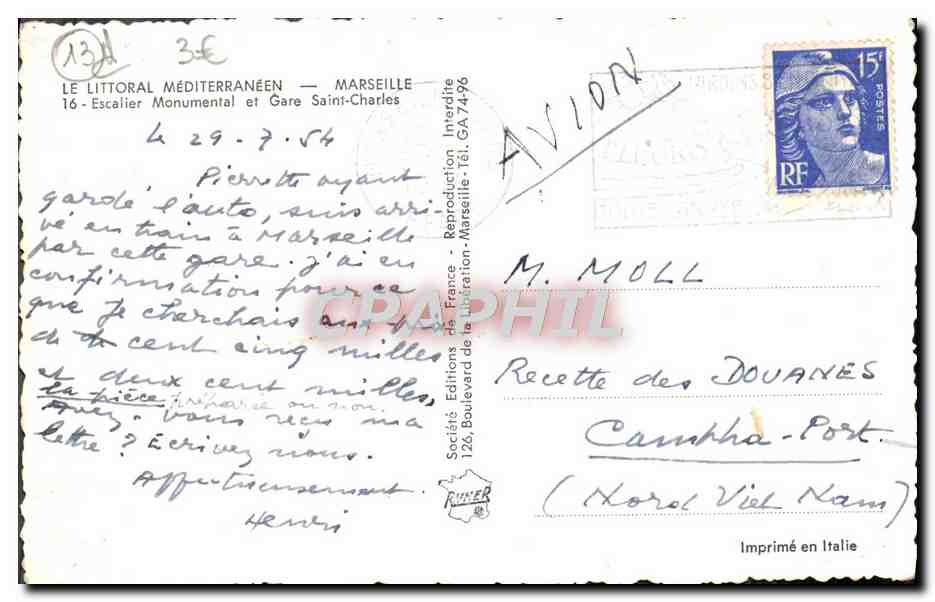 13d
3€
LE LITTORAL MÉDITERRANÉEN — MARSEILLE
16 - Escalier Monumental et Gare Saint-Charles
Le 29.7.54
Pierrette ayant
gardé l'auto, suis arri-
vé en train à Marseille
par cette gare. J'ai eu
confirmation pour ce
que je cherchais aux prix
de cent cinq milles
et deux cent milles,
la pièce préparée ou non.
Avez-vous reçu ma
lettre ? Ecrivez nous.
Affectueusement
Henri
Société Editions de France - Reproduction Interdite
126, Boulevard de la Libération - Marseille - Tél. GA 74-96
RYNER
AVION
15F
POSTES
RF
M. MOLL
Recette des DOUANES
Campha-Port
(Nord Viet Nam)
Imprimé en Italie
CPAPHIL